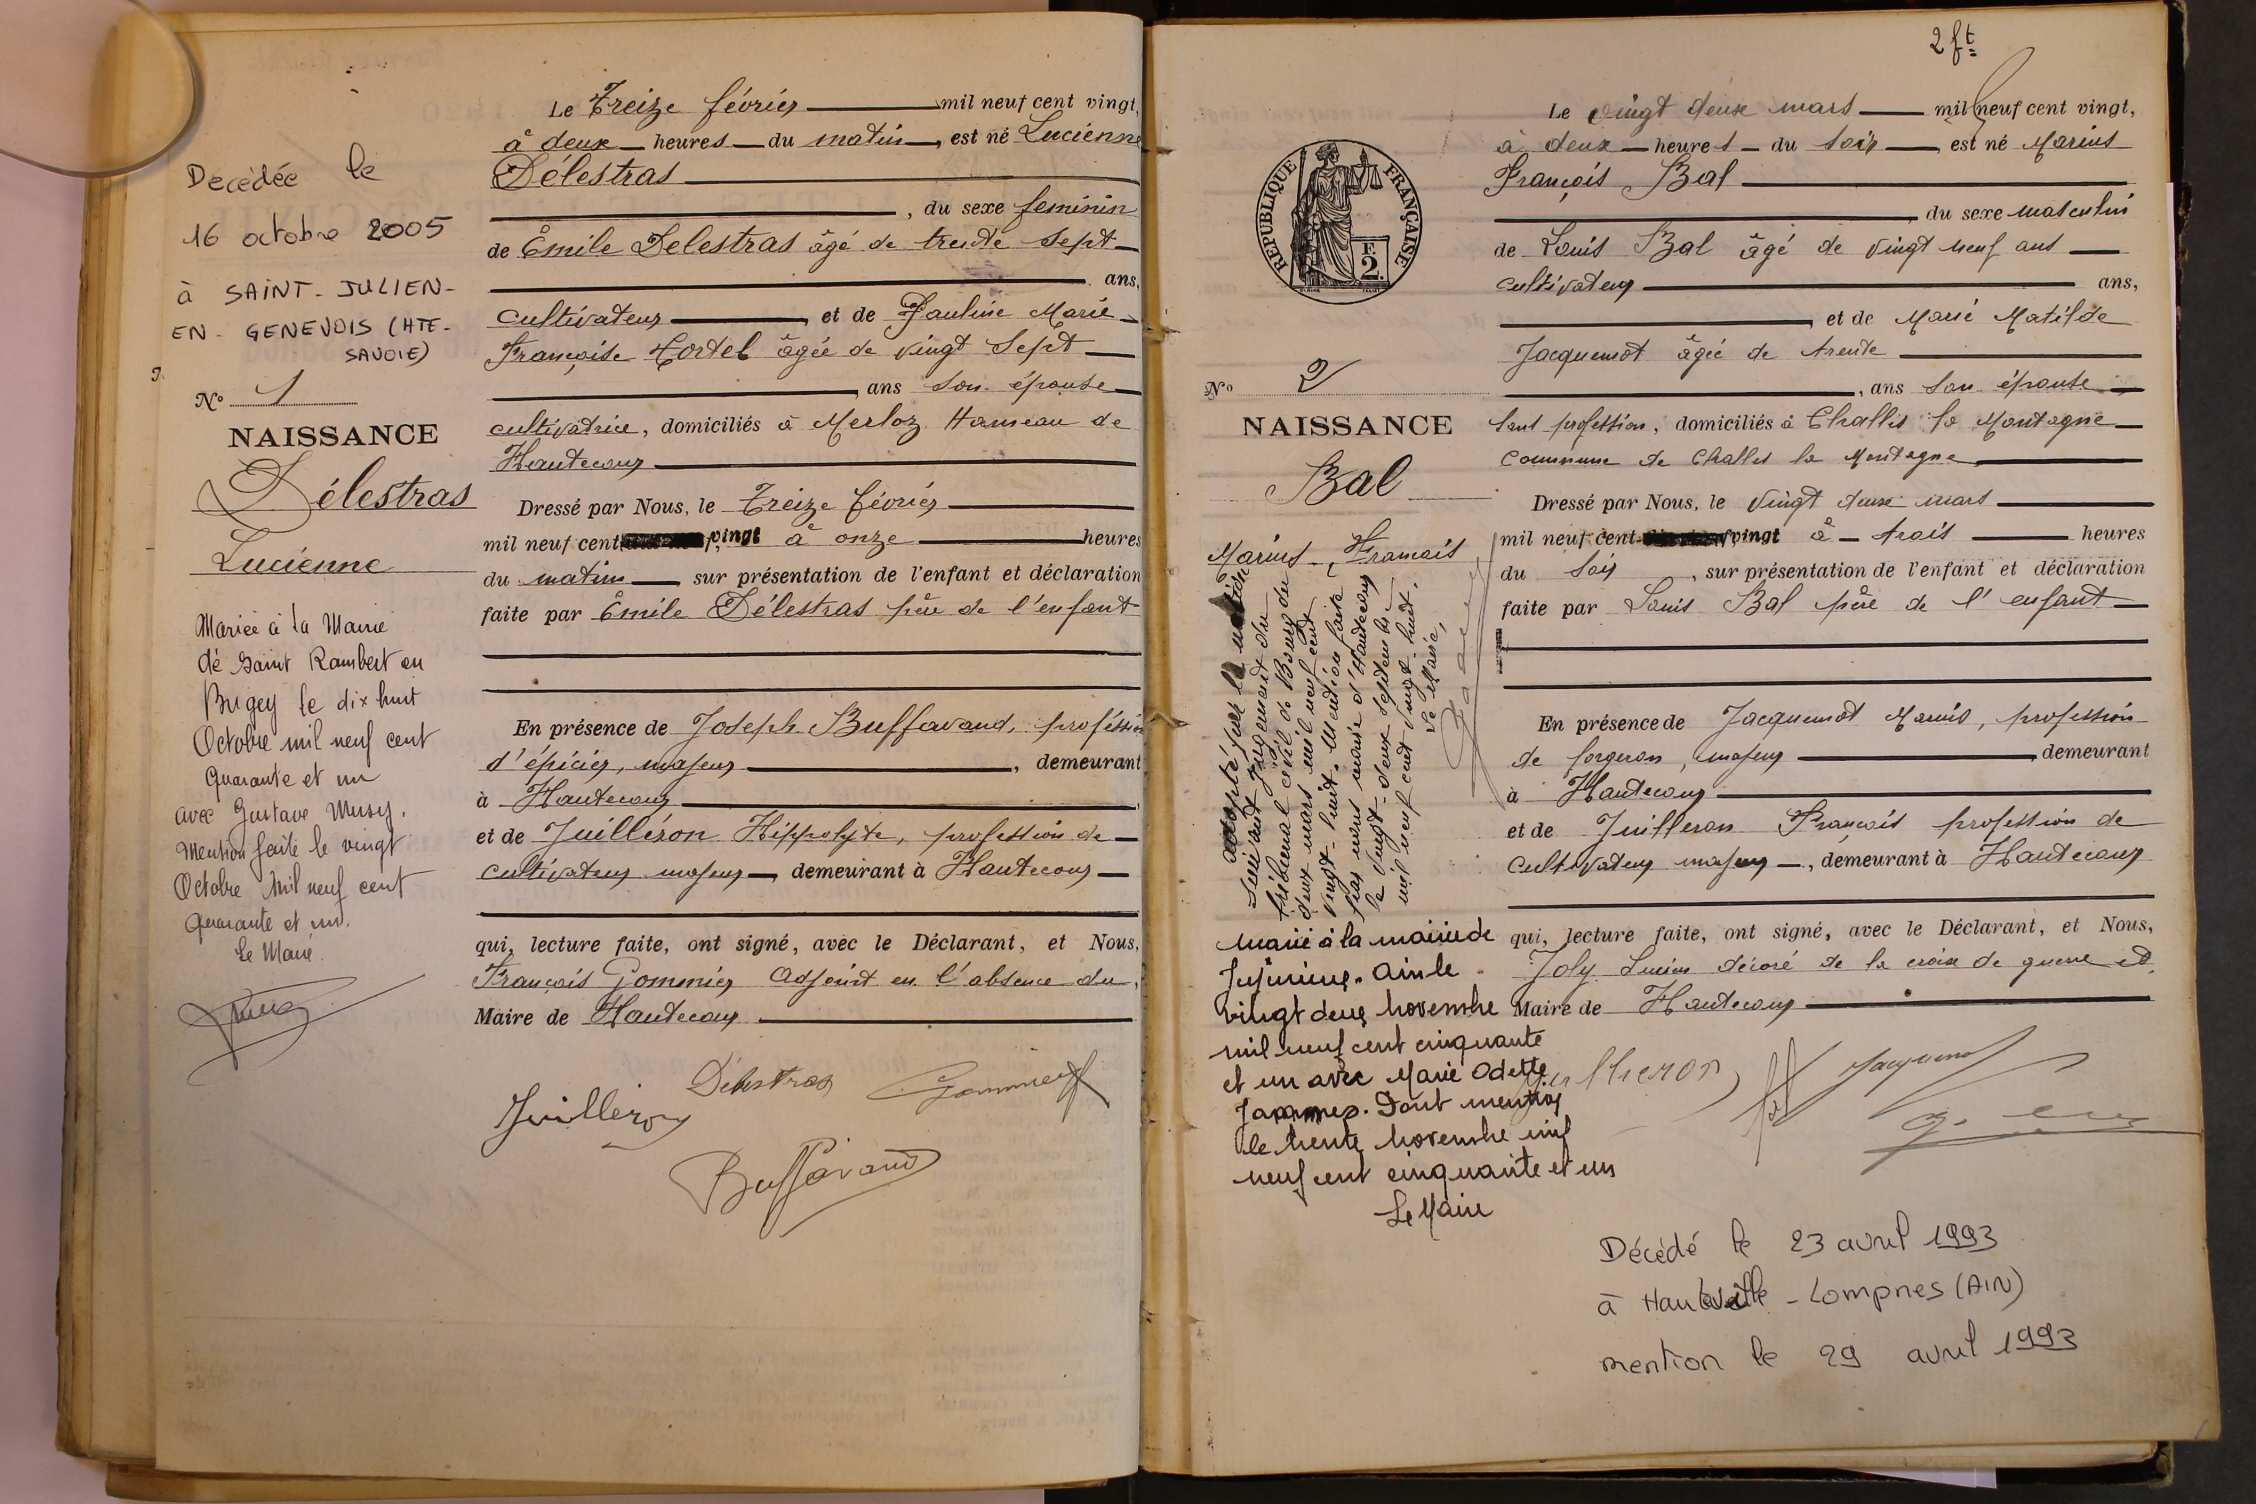 Decédée le
16 octobre 2005
à SAINT-JULIEN-
EN-GENEVOIS (HTE-
SAVOIE)
No 1
NAISSANCE
Délestras
Lucienne
Mariée à la Mairie
de Saint Rambert en
Bugey le dix huit
Octobre mil neuf cent
quarante et un
avec Gustave Musy.
Mention faite le vingt
Octobre Mil neuf cent
quarante et un.
Le Maire
Le Treize février mil neuf cent vingt,
à deux heures du matin, est né Lucienne
Délestras
, du sexe feminin
de Émile Delestras âgé de trente sept
ans,
cultivateur, et de Pauline Marie
Françoise Tortel âgée de vingt sept
, ans son épouse
cultivatrice, domiciliés à Merloz Hameau de
Hautecour
Dressé par Nous, le Treize février
mil neuf cent vingt à onze heures
du matin sur présentation de l'enfant et déclaration
faite par Émile Délestras père de l'enfant
En présence de Joseph Buffavand, profession
d'épicier, majeur, demeurant
à Hautecour,
et de Juilléron Hippolyte, profession de
cultivateur majeur, demeurant à Hautecour
qui, lecture faite, ont signé, avec le Déclarant, et Nous,
François Gommier Adjoint en l'absence du,
Maire de Hautecour
Délestras Gommier
Juilleron
Buffavand
2 ft
RÉPUBLIQUE FRANÇAISE
F.
2.
No 2
NAISSANCE
Bal
Marius, François
adopté par la nation
suivant Jugement du
tribunal civil de Bourg du
deux mars mil neuf cent
vingt-huit. Mention faite
par nous maire d'Hautecour
le vingt-deux septembre
mil neuf cent vingt-huit.
Le Maire,
Marié à la mairie de
Jujurieux. Ain le
vingt deux novembre
mil neuf cent cinquante
et un avec Marie Odette
Dont mention
le trente novembre mil
neuf cent cinquante et un
Le Maire
Le vingt deux mars mil neuf cent vingt,
à deux heures du soir, est né Marius
François Bal
du sexe masculin
de Louis Bal âgé de vingt neuf ans
cultivateur ans,
, et de Marie Matilde
Jacquemot âgée de trente
, ans son épouse
sans profession, domiciliés à Challes la Montagne
commune de Challes la Montagne
Dressé par Nous, le vingt deux mars
mil neuf cent vingt à trois heures
du soir, sur présentation de l'enfant et déclaration
faite par Louis Bal père de l'enfant
En présence de Jacquemot Marius, profession
de forgeron, majeur demeurant
à Hautecour
et de Juilleron François profession de
cultivateur majeur, demeurant à Hautecour
qui, lecture faite, ont signé, avec le Déclarant, et Nous,
Joly Lucien décoré de la croix de guerre
Maire de Hautecour
Juilleron Jacquemot
Décédé le 23 avril 1993
à Hauteville-Lompnes (AIN)
mention le 29 avril 1993